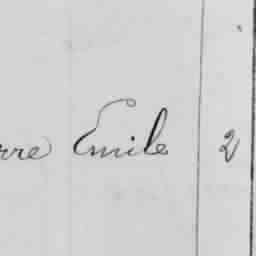 rre Emile 2